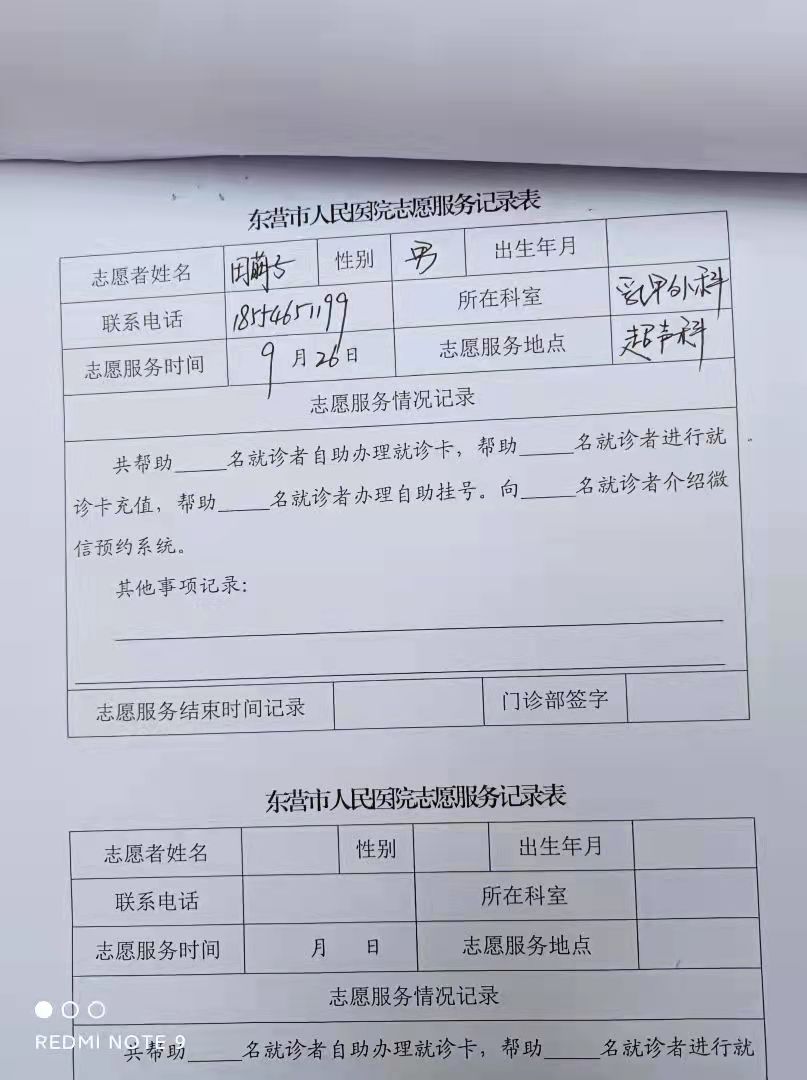 东营市人民医院志愿服务记录表
志愿者姓名 田 性别 男 出生年月
联系电话 18554651199 所在科室 乳甲外科
志愿服务时间 9月26日 志愿服务地点 超声科
志愿服务情况记录
共帮助_____名就诊者自助办理就诊卡，帮助_____名就诊者进行就
诊卡充值，帮助_____名就诊者办理自助挂号。向_____名就诊者介绍微
信预约系统。
其他事项记录：
志愿服务结束时间记录 门诊部签字
东营市人民医院志愿服务记录表
志愿者姓名 性别 出生年月
联系电话 所在科室
志愿服务时间 月 日 志愿服务地点
志愿服务情况记录
共帮助_____名就诊者自助办理就诊卡，帮助_____名就诊者进行就
REDMI NOTE 9